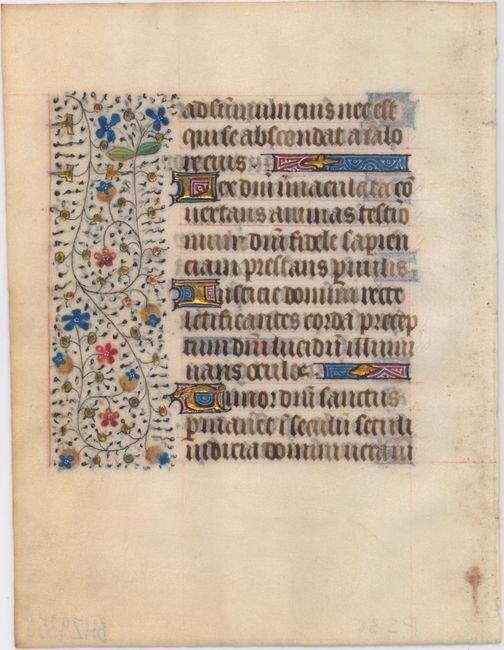 ad sūmum eius nec est
qui se abscondat a calo
re eius
Lex dn̄i īmaculata cō
uertens animas testīo
nium dn̄i fidele sapien
ciam prestans puulis
Iusticie domini recte
letificantes corda precep
tum dn̄i lucidū illumi
nans oculos
Timor dn̄i sanctus
pmanet ī seculū seculi
iudicia domini uera